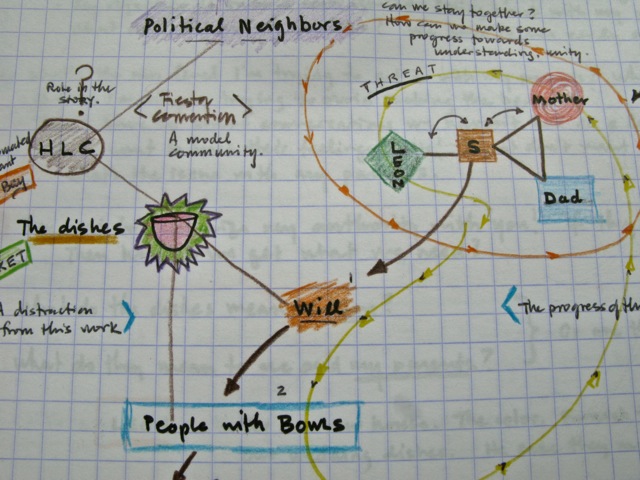 Political Neighbors
can we stay together?
How can we make some
progress towards
understanding, unity.
THREAT
?
Role in the
story.
Fiesta
convention
A model
community.
HLC
Mother
LEON
S
Dad
Bay
The dishes
KET
1
Will
A distraction
from this work
The progress of th
2
People with Bowls